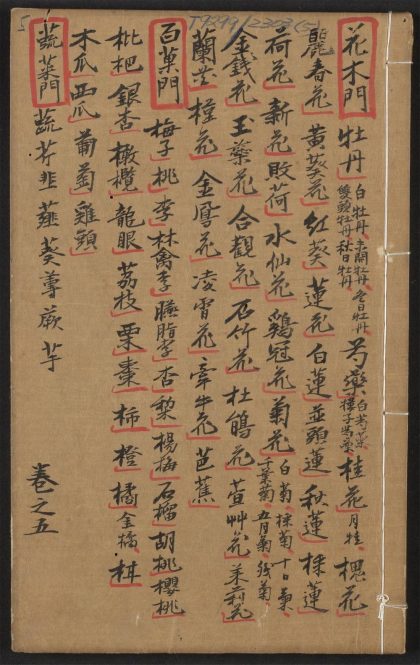 T9299/2203 (5)
5
花木門 牡丹 白牡丹 未開牡丹 冬日牡丹 雙頭牡丹 秋日牡丹 芍藥 白芍藥 桂花 月桂 槐花
麗春花 黃葵花 紅葵 蓮花 白蓮 並頭蓮 秋蓮 採蓮
荷花 新花 敗荷 水仙花 鷄冠花 菊花 白菊 採菊 十日菊 千葉菊 五月菊 殘菊
金錢花 玉蘂花 合觀花 石竹花 杜鵑花 萱艸花 茉莉花
蘭花 槿花 金鳳花 凌霄花 牽牛花 芭蕉
百菓門 梅子 桃 李 林禽李 臙脂李 杏 梨 楊梅 石榴 胡桃 櫻桃
枇杷 銀杏 橄欖 龍眼 荔枝 栗 棗 柿 橙 橘 金橘
木瓜 西瓜 葡萄 雞頭
蔬菜門 蔬 芥 韭 薤 葵 蓴 蕨 芋
卷之五